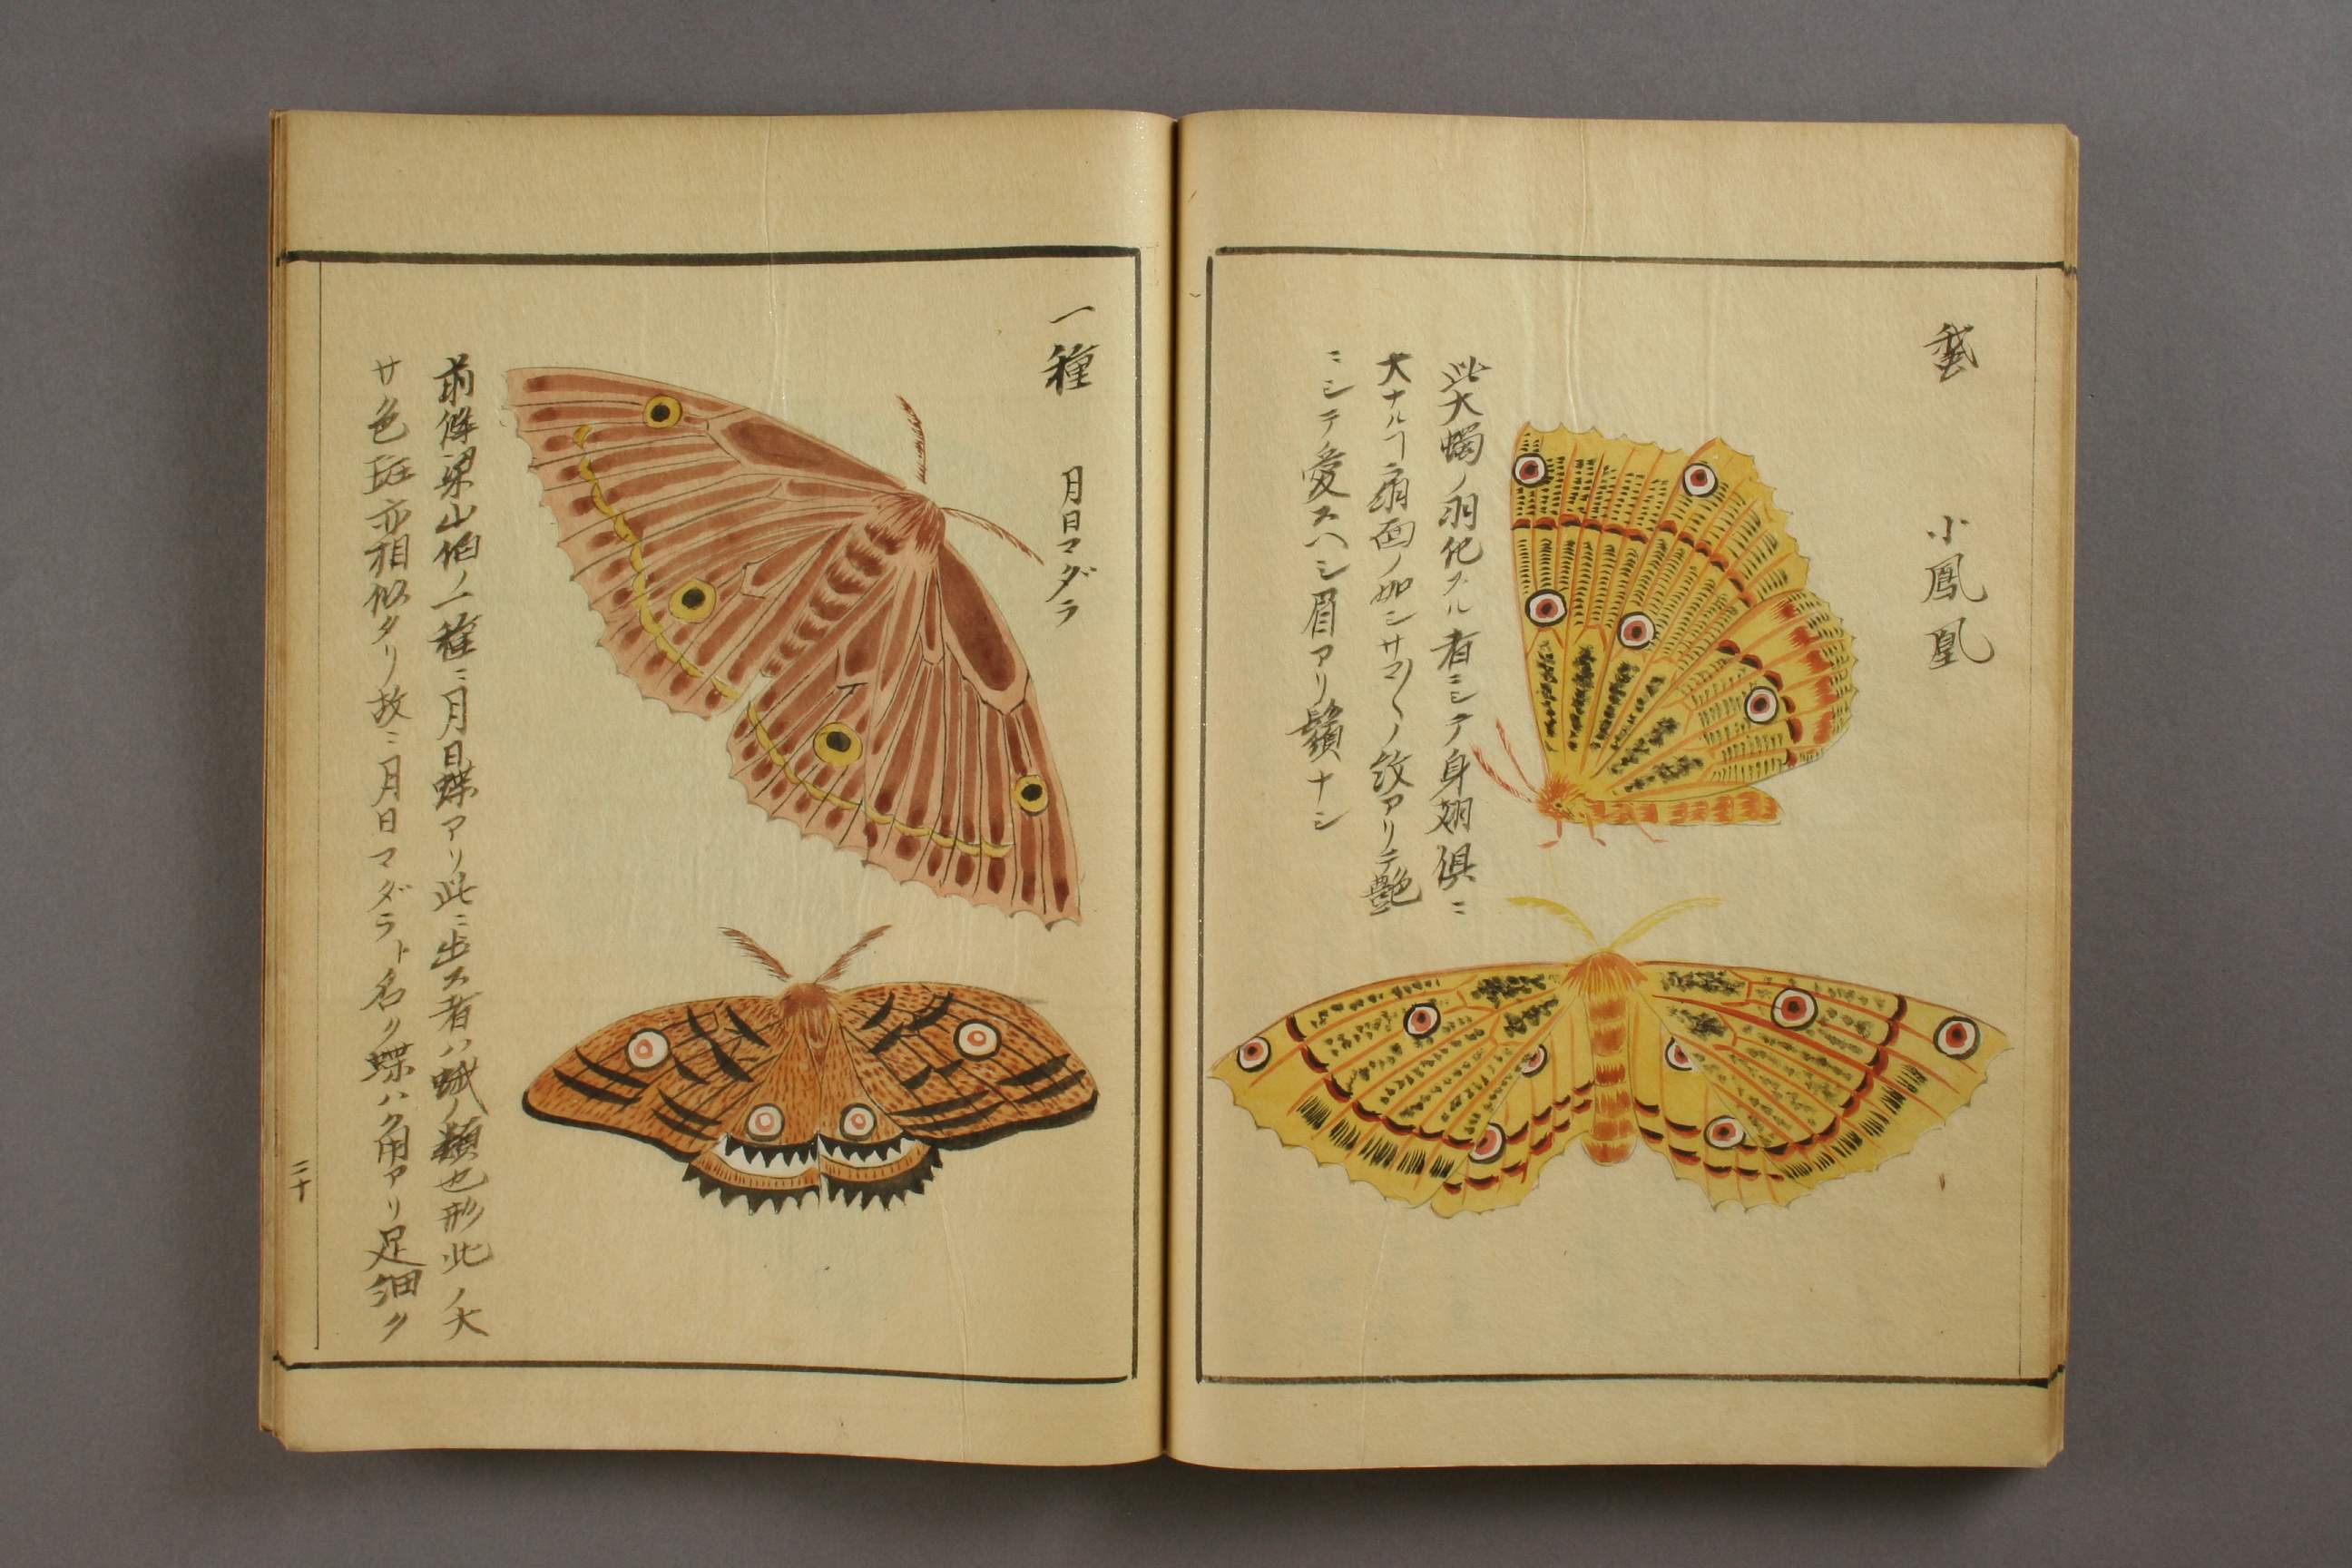 蛾
小鳳凰
此大蠋ノ羽化スル者ニシテ身翅俱ニ
大ナルヿ扇面ノ如シサマ〱ノ紋アリテ艶
ニシテ愛スヘシ眉アリ鬚ナシ
一種
月日マダラ
前條梁山伯ノ一種ニ月日蝶アリ此ニ出ス者ハ蛾ノ類也形此ノ大
サ色斑亦相似タリ故ニ月日マダラト名ク蝶ハ角アリ足細ク
二十